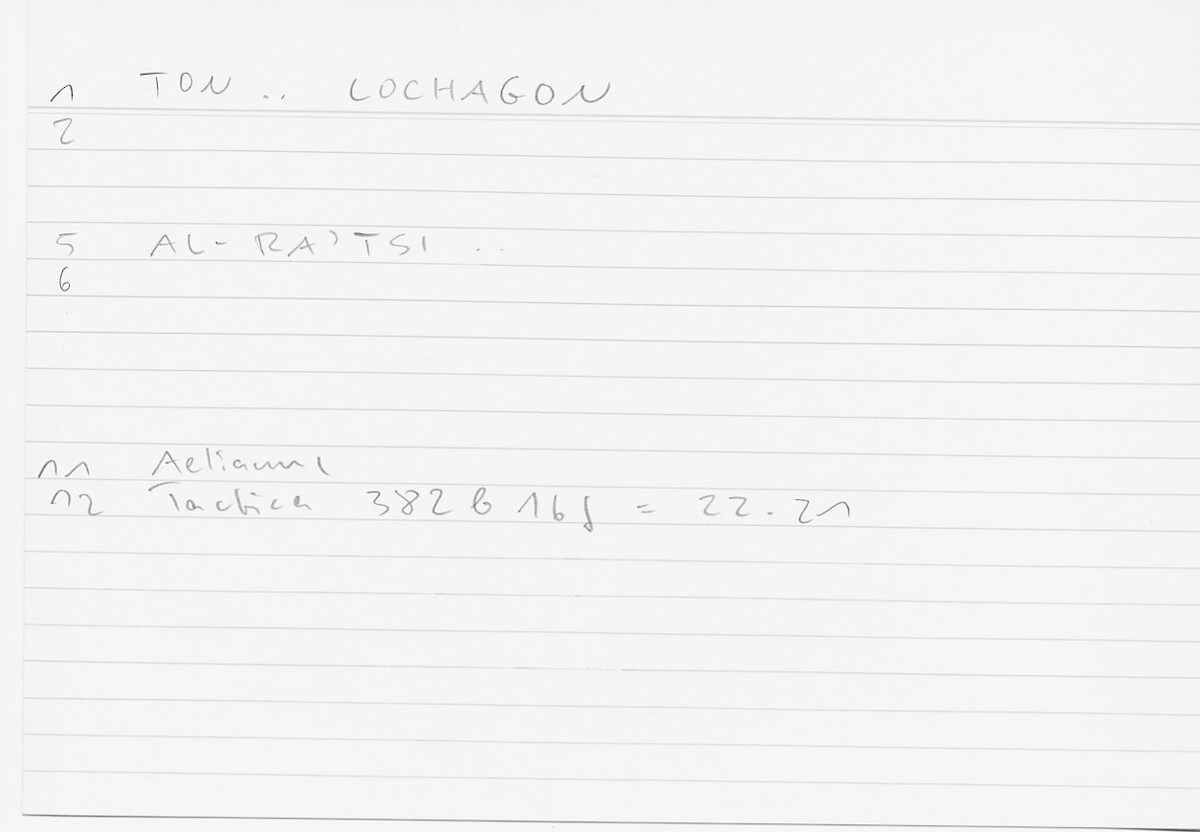 1 TON .. LOCHAGON
2
5 AL-RA'TSI ..
6
11 Aelianus
12 Tactica 382 b 16f = 22.21